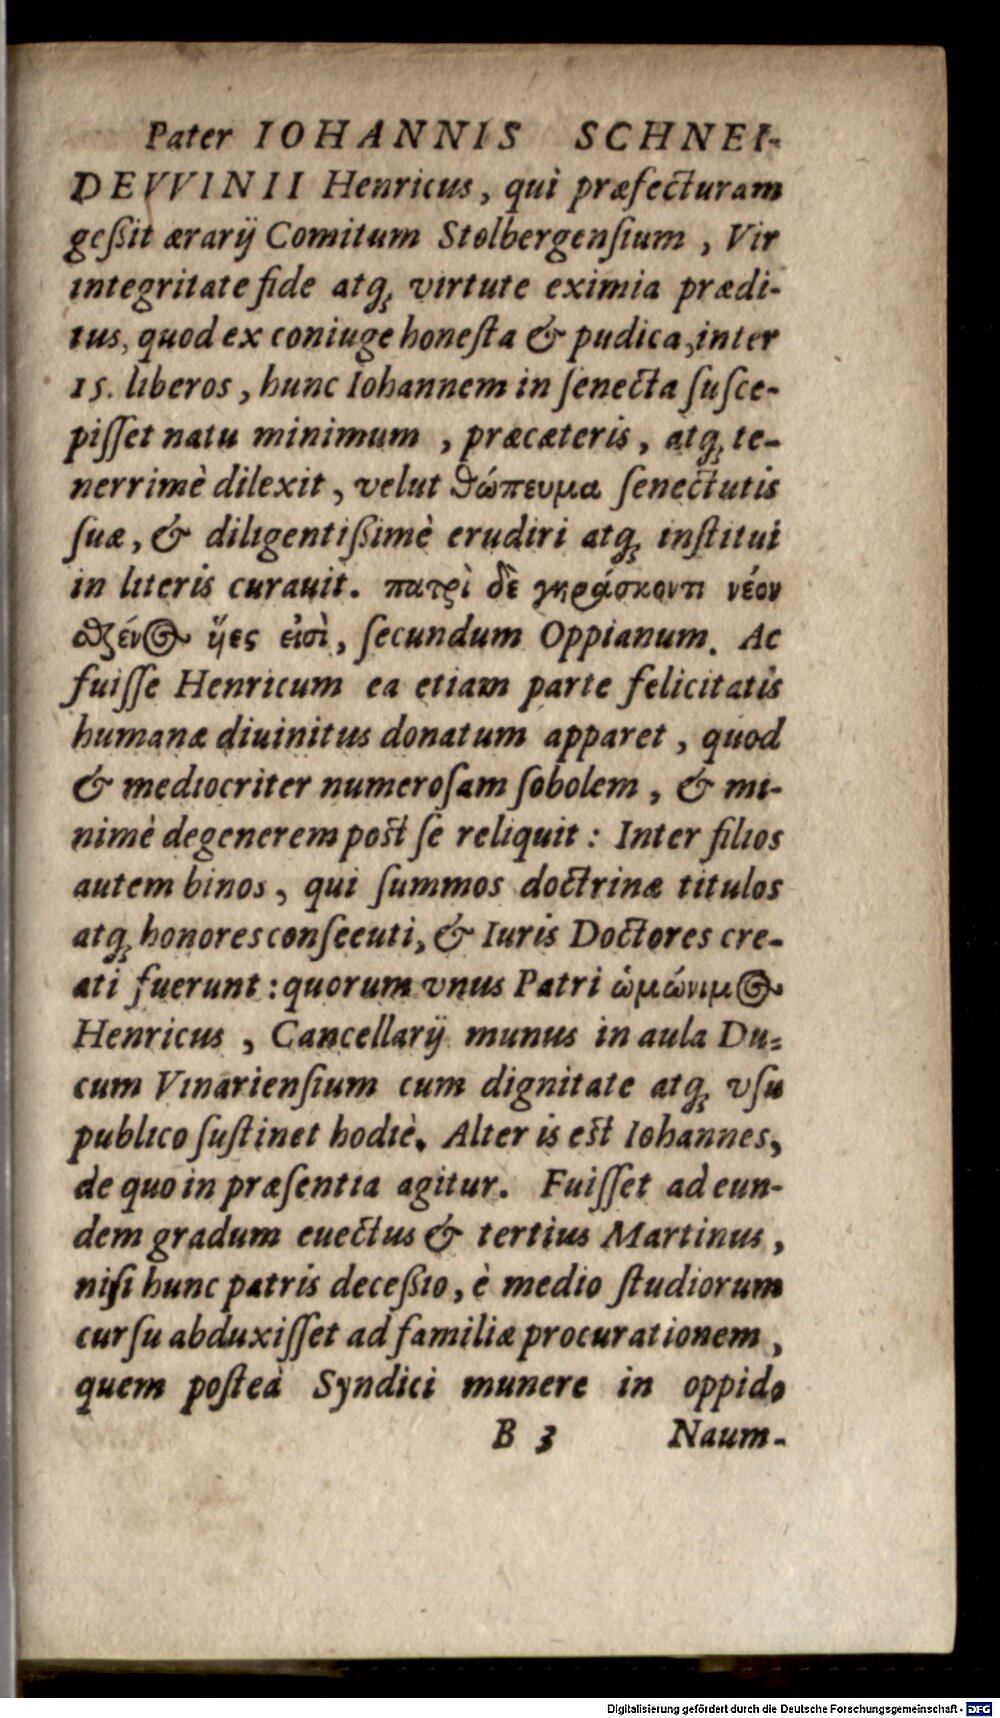 Pater IOHANNIS SCHNEI-
DEVVINII Henricus, qui præfecturam
geſſit ærarÿ Comitum Stolbergenſium, Vir
integritate fide atq; virtute eximia prædi-
tus, quod ex coniuge honeſta & pudica, inter
15. liberos, hunc Iohannem in ſenecta ſuſce-
piſſet natu minimum, præcæteris, atq; te-
nerrimè dilexit, velut θώπευμα ſenectutis
ſuæ, & diligentißimè erudiri atq; inſtitui
in literis curauit. πατρὶ δὲ γηράσκοντι νέον
σθένος ἥες εἰσὶ, ſecundum Oppianum. Ac
fuiſſe Henricum ea etiam parte felicitatis
humanæ diuinitus donatum apparet, quod
& mediocriter numeroſam ſobolem, & mi-
nimè degenerem poſt ſe reliquit: Inter filios
autem binos, qui ſummos doctrinæ titulos
atq; honores conſeeuti, & Iuris Doctores cre-
ati fuerunt: quorum vnus Patri ὡμώνιμος
Henricus, Cancellarÿ munus in aula Du-
cum Vinarienſium cum dignitate atq; vſu
publico ſuſtinet hodiè. Alter is eſt Iohannes,
de quo in præſentia agitur. Fuiſſet ad eun-
dem gradum euectus & tertius Martinus,
niſi hunc patris deceßio, è medio ſtudiorum
curſu abduxiſſet ad familiæ procurationem,
quem poſteà Syndici munere in oppido
B 3 Naum-
Digitalisierung gefördert durch die Deutsche Forschungsgemeinschaft - DFG